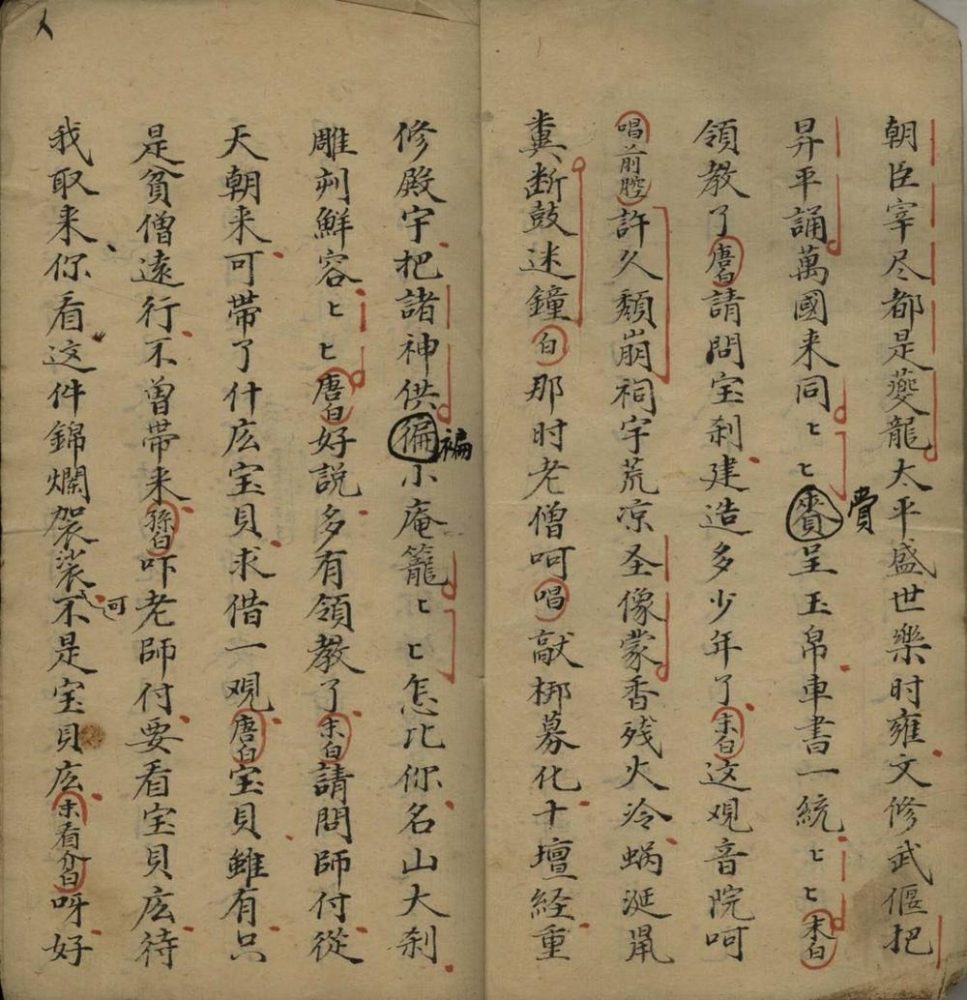 朝臣宰尽都是夔龍太平盛世樂时雍文修武偃把
昇平誦萬國来同ヒヒ賫賷呈玉帛車書一統ヒヒ末白
領教了唐白請問宝刹建造多少年了末白这观音院呵
唱前腔許久頽崩祠宇荒凉圣像蒙香残火冷蜗涎鼠
糞断鼓迷鐘白那时老僧呵唱敲梆募化十壇経重
修殿宇把諸神供褊小庵籠ヒヒ怎比你名山大刹
雕刻鮮容ヒヒ唐白好説多有領教了末白請問師付從
天朝来可帶了什庅宝貝求借一观唐白宝貝雖有只
是貧僧遠行不曾帶来孫白吓老師付要看宝貝庅待
我取来你看这件錦斕袈裟可不是宝貝庅末看介白呀好